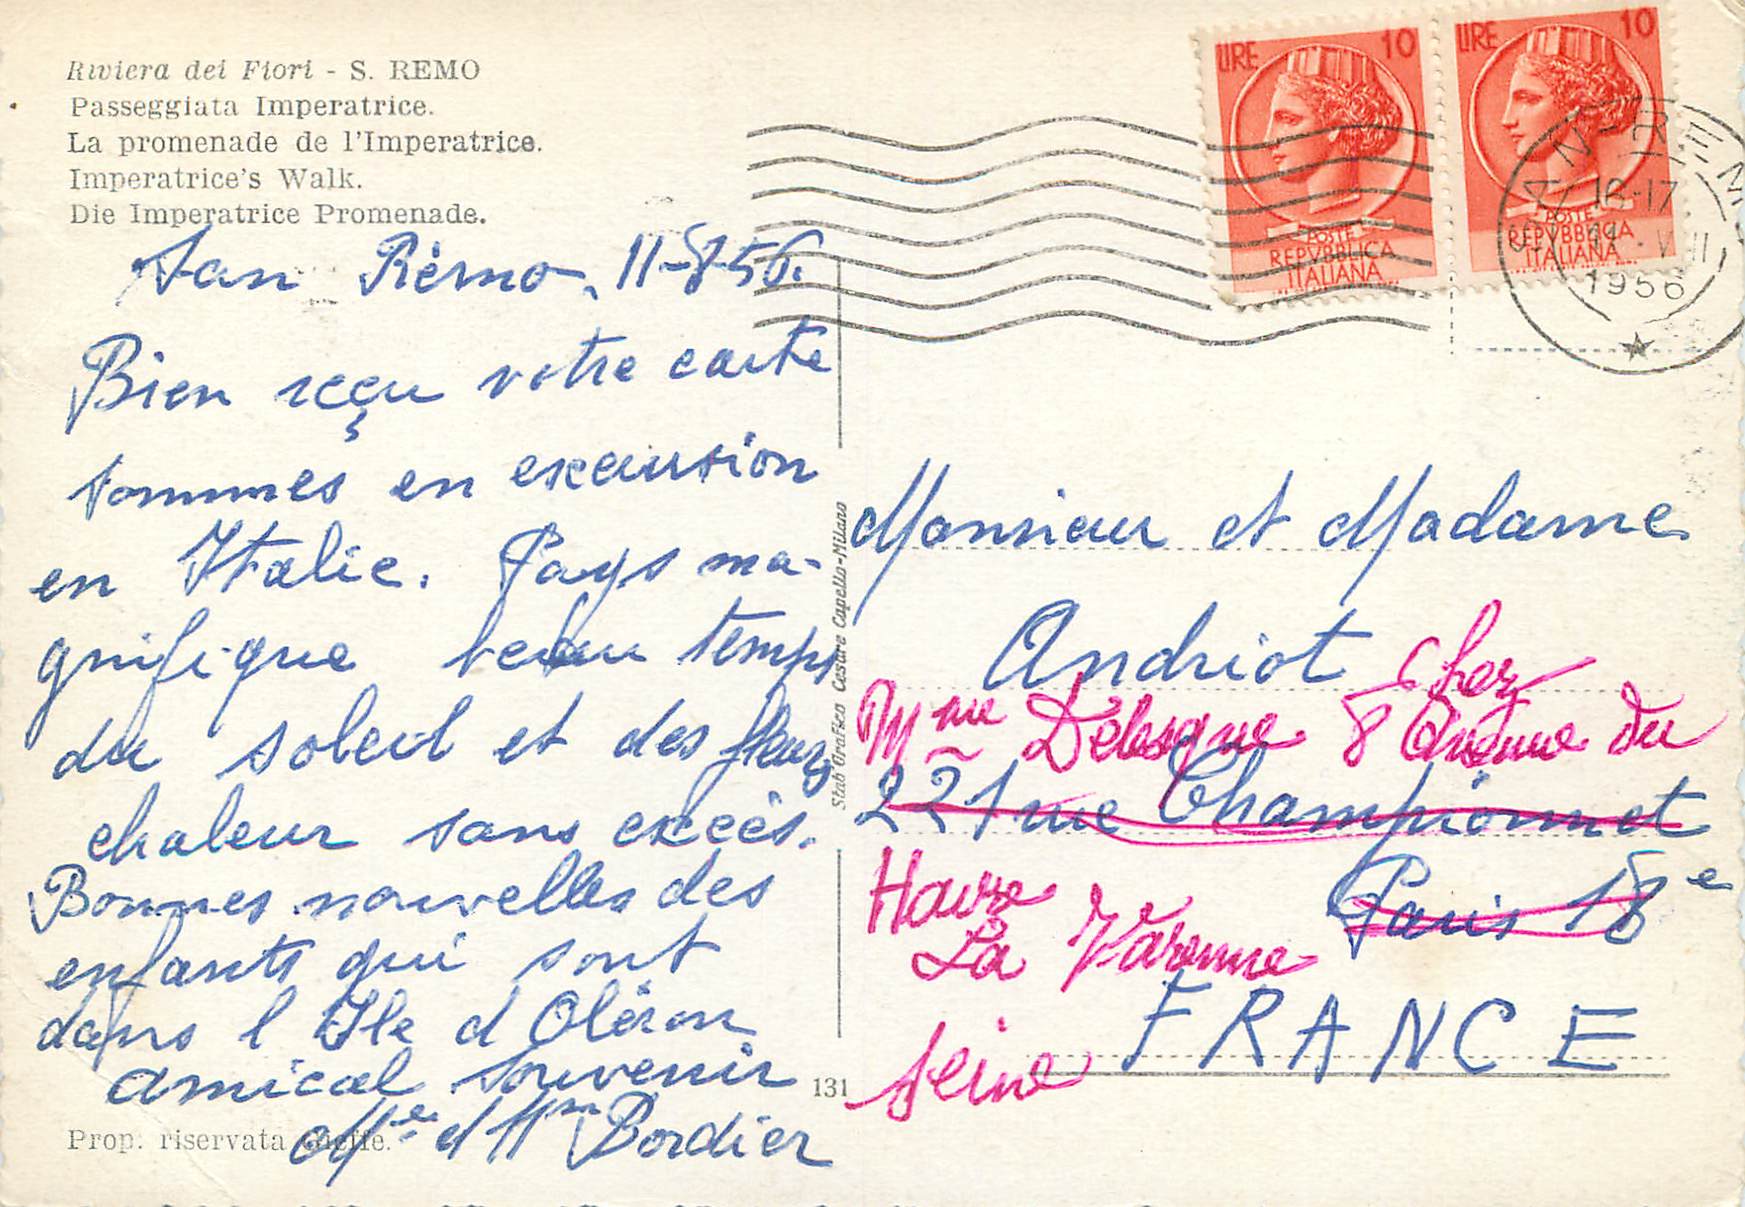 Riviera dei Fiori - S. REMO
Passeggiata Imperatrice.
La promenade de l'Imperatrice.
Imperatrice's Walk.
Die Imperatrice Promenade.
San Rémo, 11-8-56.
Bien reçu votre carte
sommes en excursion
en Italie. Pays ma-
gnifique beau temps
du soleil et des fleurs
chaleur sans excès.
Bonnes nouvelles des
enfants qui sont
dans l Ile d Oléron
amical souvenir
Bordier
Prop. riservata
131
Stab Grafico Cesare Capello-Milano
LIRE 10
POSTE
REPVBBLICA
ITALIANA
LIRE 10
POSTE
REPVBBLICA
ITALIANA
16-17
1956
Monsieur et Madame
Andriot chez
Mme 8 Avenue du
221 rue Championnet
Havre
Paris 18e
La Varenne
FRANCE
Seine